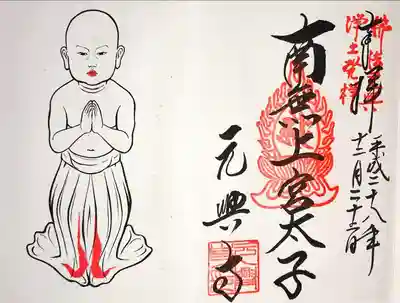 奉拝
浄土発祥
平成二十八年
十二月二十三日
南無上宮太子
元興寺